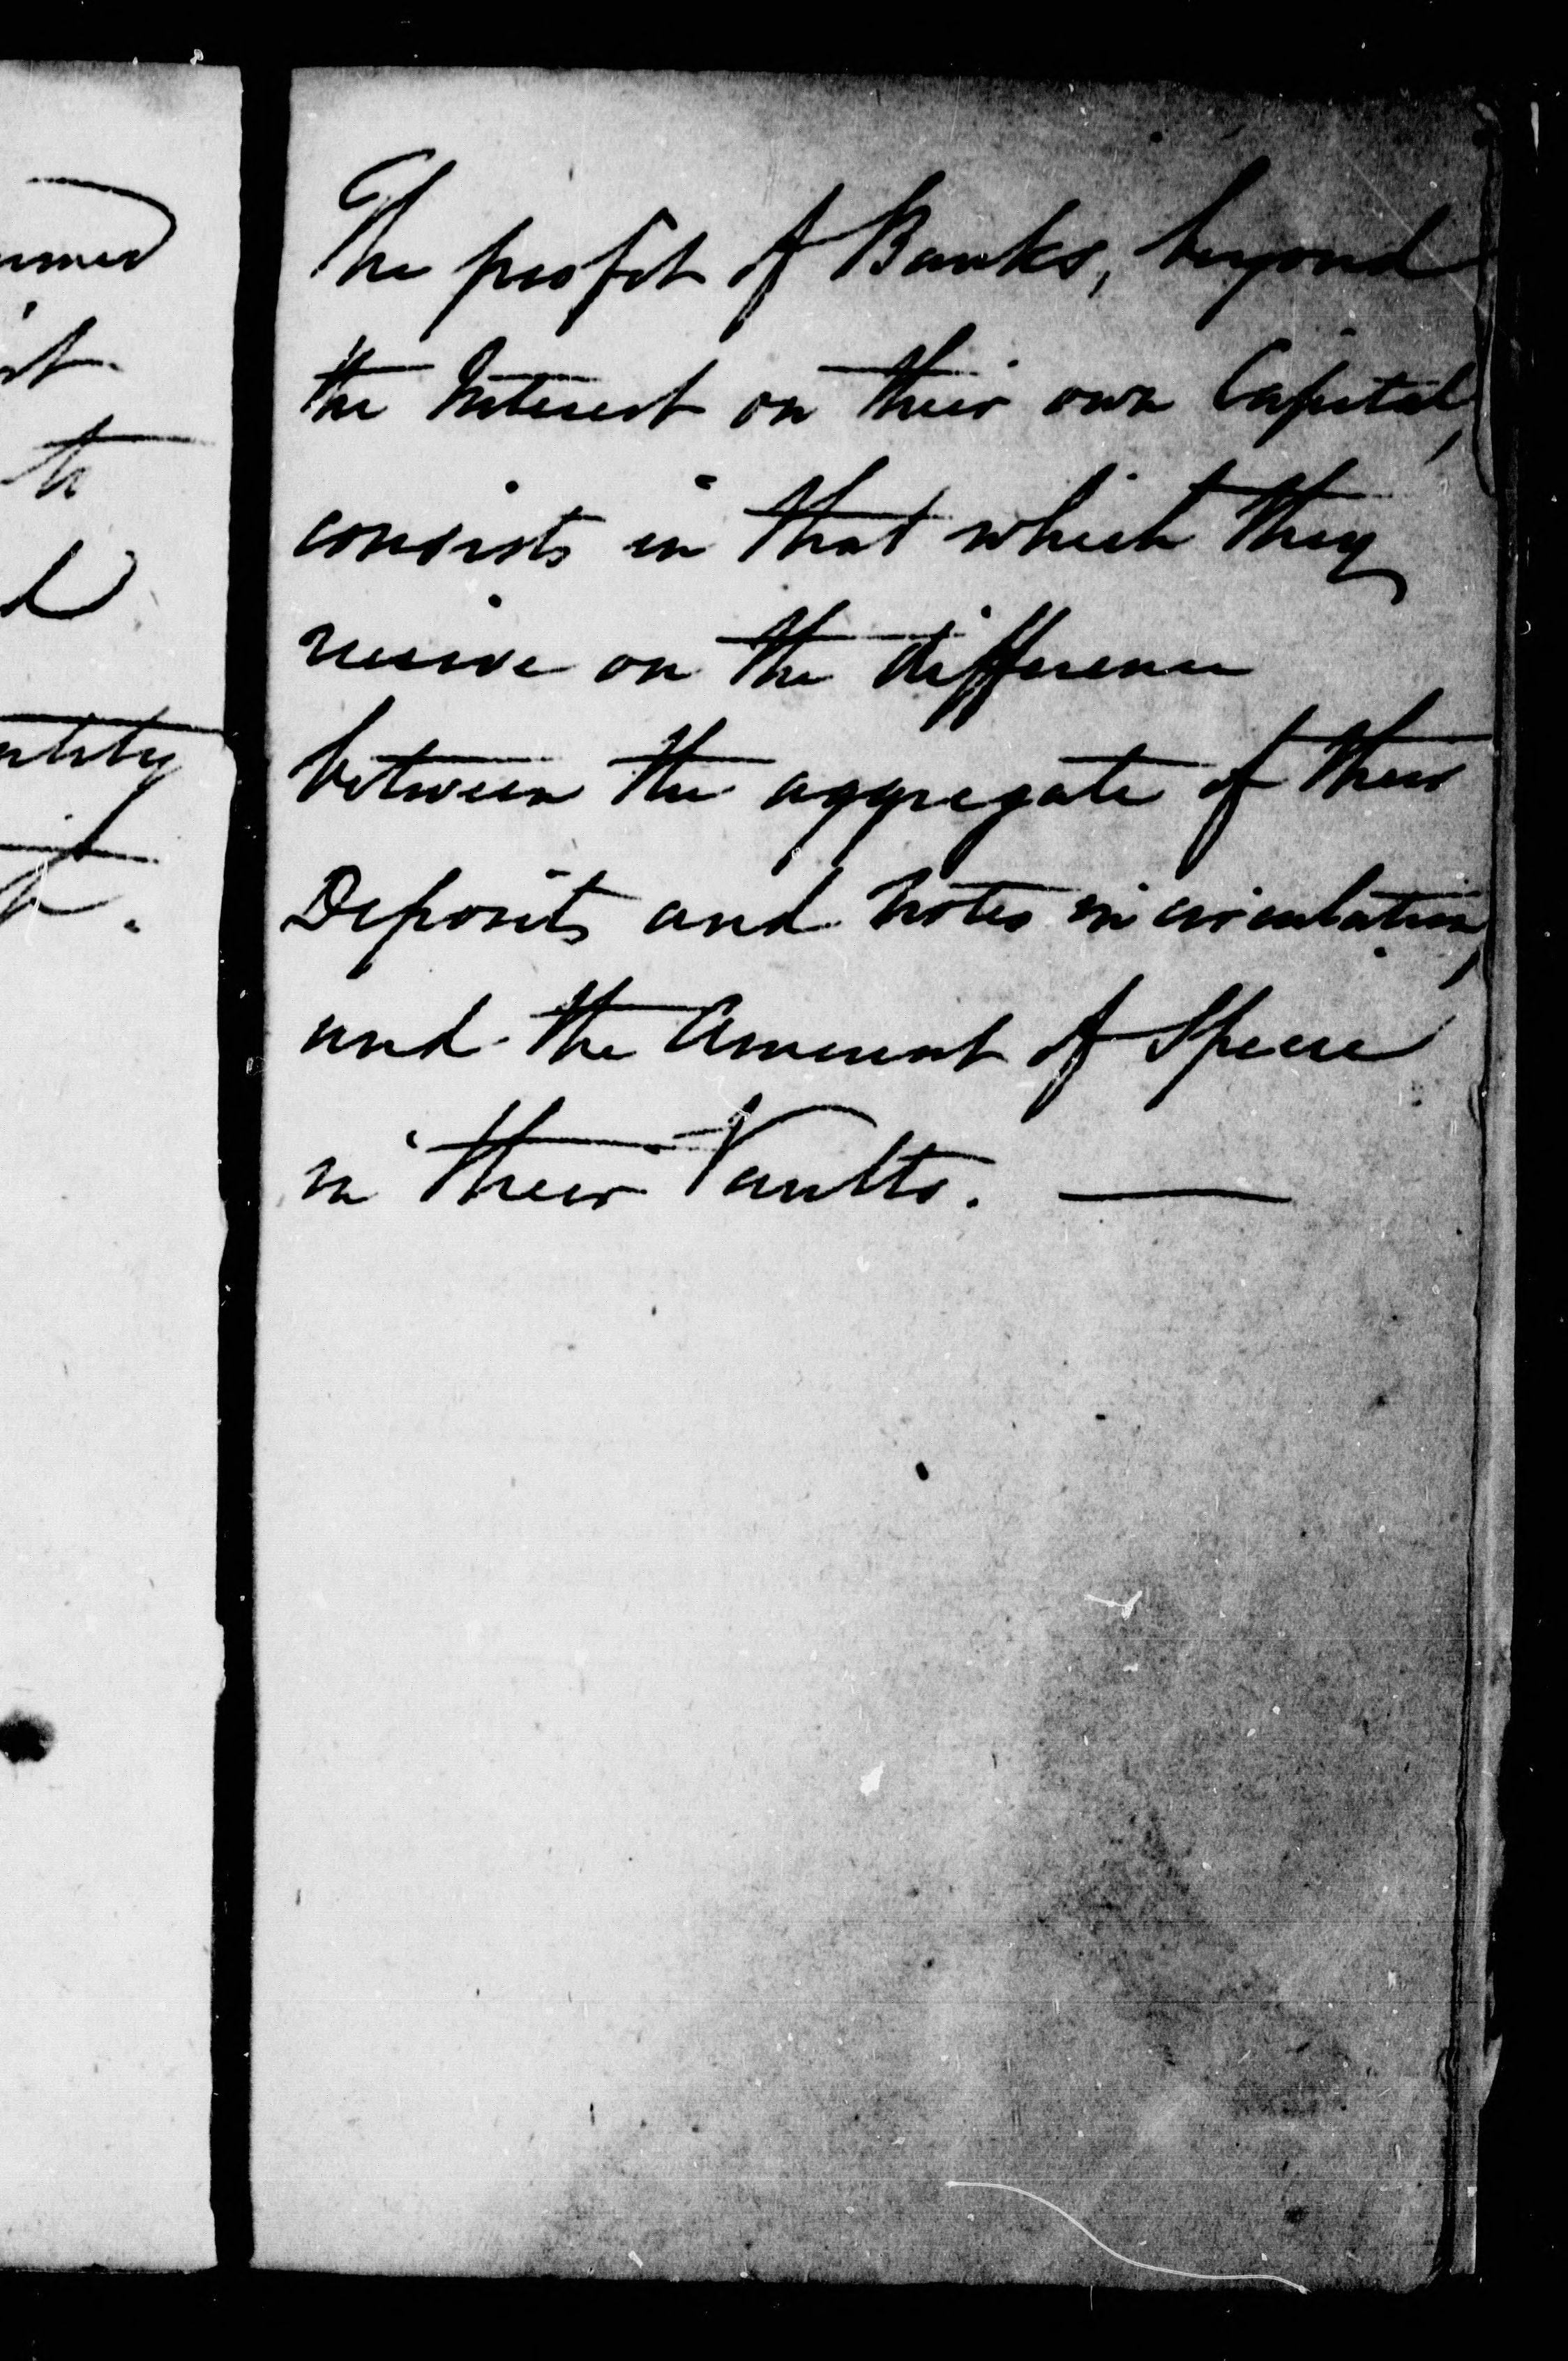 The profit of Banks, beyond
the Interest on their own Capital,
consists in that which they
receive on the difference
between the aggregate of their
Deposits and notes in circulation,
and the Amount of Specie
in their Vaults. —
to